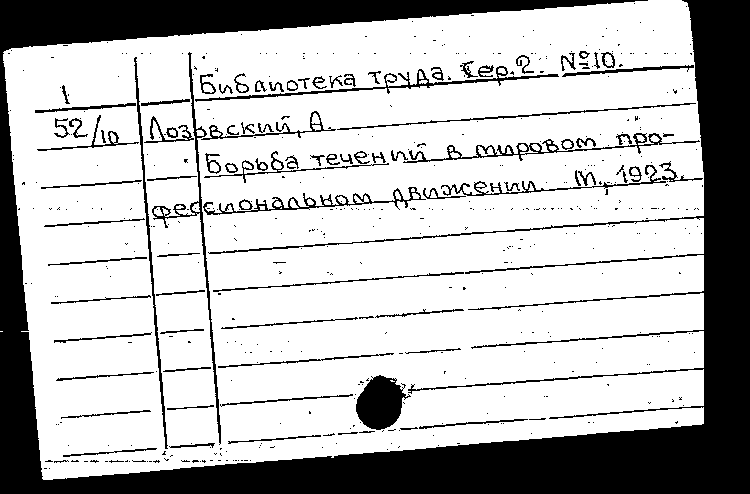 Библиотека труда. Сер.2. №10.
1
52/10 Лозовский, А.
Борьба течений в мировом про-
фессиональном движении М., 1923.